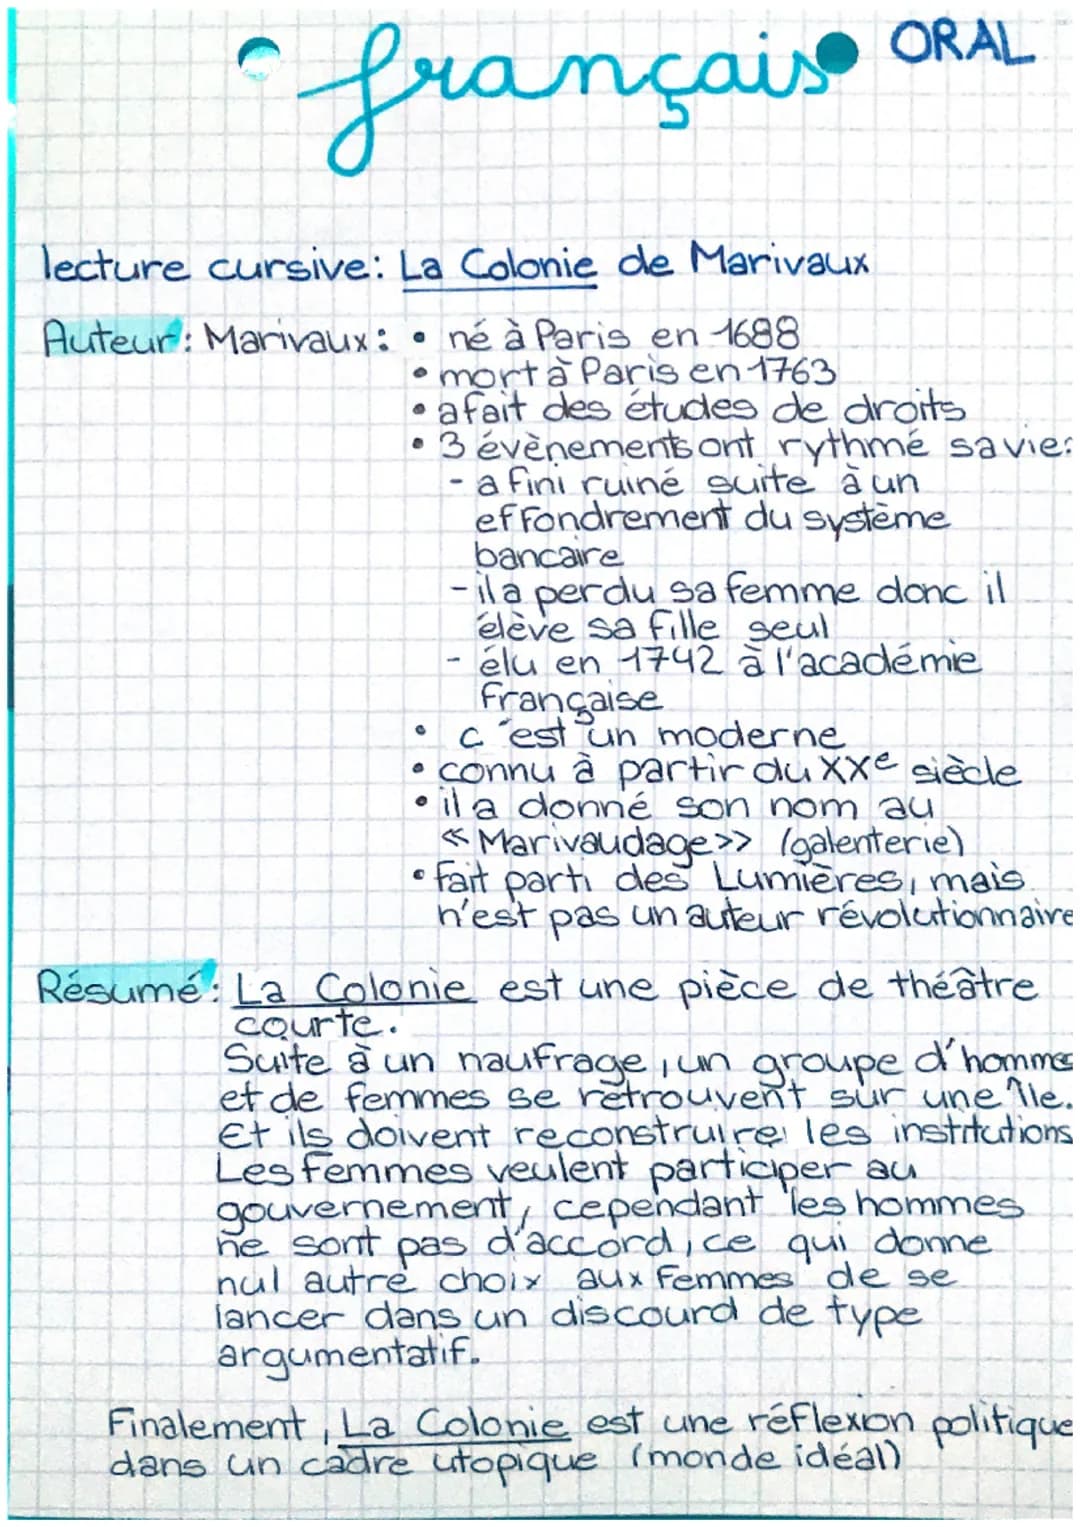 français ORAL
lecture cursive: La Colonie de Marivaux
Auteur: Marivaux: • né à Paris en 1688
• mort à Paris en 1763
• a fait des études de droits
• 3 évènements ont rythmé sa vie:
- a fini ruiné suite à un
effondrement du système
bancaire
- il a perdu sa femme donc il
élève sa fille seul
- élu en 1742 à l'académie
Française
• c'est un moderne
• connu à partir du XXe siècle
• il a donné son nom au
<< Marivaudage >> (galenterie)
• fait parti des Lumières, mais
n'est pas un auteur révolutionnaire
Résumé: La Colonie est une pièce de théâtre
courte.
Suite à un naufrage, un groupe d'hommes
et de femmes se retrouvent sur une île.
Et ils doivent reconstruire les institutions
Les femmes veulent participer au
gouvernement, cependant les hommes
ne sont pas d'accord, ce qui donne
nul autre choix aux femmes de se
lancer dans un discourd de type
argumentatif.
Finalement, La Colonie est une réflexion politique
dans un cadre utopique (monde idéal)